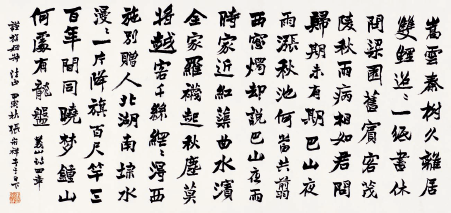 嵩雲秦樹久離居
雙鯉迢〻一紙書休
問梁園舊賓客茂
陵秋雨病相如君問
歸期未有期巴山夜
雨漲秋池何當共翦
西窗燭却說巴山夜雨
時家近紅蕖曲水濱
全家羅襪起秋塵莫
將越客千絲網〻得西
施別贈人北湖南埭水
漫〻一片降旗百尺竿三
百年間同曉夢鍾山
何處有龍盤 義山詩四章